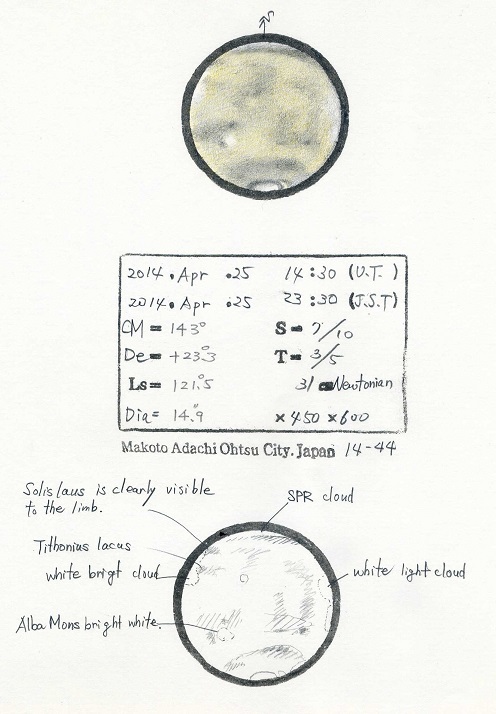 S
2014. Apr .25 14:30 (U.T.)
2014. Apr .25 23:30 (J.S.T)
CM = 143° S = 7/10
De = +23.°3 T = 3/5
Ls = 121.°5 31 Newtonian
Dia = 14."9 ×450 ×600
Makoto Adachi Ohtsu City. Japan 14-44
Solis laus is clearly visible
to the limb.
SPR cloud
Tithonius lacus
white brigt cloud
white light cloud
Alba Mons bright white.